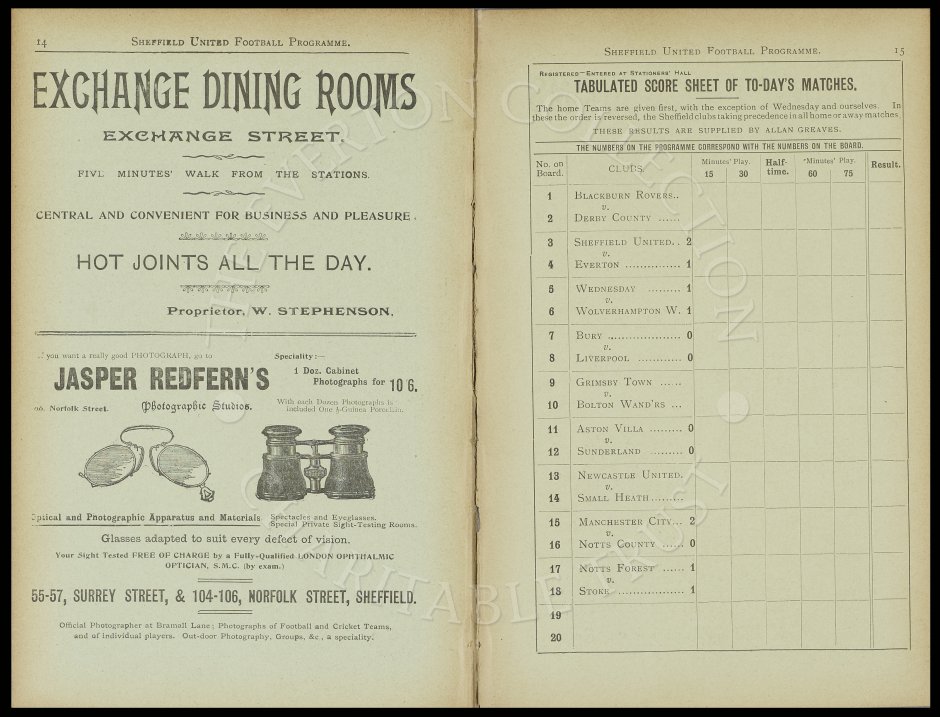 14
SHEFFIELD UNITED FOOTBALL PROGRAMME.
EXCHANGE DINING ROOMS
EXCHANGE STREET.
FIVE MINUTES' WALK FROM THE STATIONS.
CENTRAL AND CONVENIENT FOR BUSINESS AND PLEASURE.
HOT JOINTS ALL THE DAY.
Proprietor, W. STEPHENSON.
you want a really good PHOTOGRAPH, go to
JASPER REDFERN'S
Norfolk Street. Photographic Studios.
Speciality:—
1 Doz. Cabinet
Photographs for 10/6.
With each Dozen Photographs is
included One ½-Guinea Porcelain.
Optical and Photographic Apparatus and Materials
Spectacles and Eyeglasses.
Special Private Sight-Testing Rooms.
Glasses adapted to suit every defect of vision.
Your Sight Tested FREE OF CHARGE by a Fully-Qualified LONDON OPHTHALMIC
OPTICIAN, S.M.C. (by exam.)
55-57, SURREY STREET, & 104-106, NORFOLK STREET, SHEFFIELD.
Official Photographer at Bramall Lane; Photographs of Football and Cricket Teams,
and of individual players. Out-door Photography, Groups, &c., a speciality.
SHEFFIELD UNITED FOOTBALL PROGRAMME.
15
REGISTERED—ENTERED AT STATIONERS' HALL
TABULATED SCORE SHEET OF TO-DAY'S MATCHES.
The home Teams are given first, with the exception of Wednesday and ourselves. In
these the order is reversed, the Sheffield clubs taking precedence in all home or away matches
THESE RESULTS ARE SUPPLIED BY ALLAN GREAVES.
THE NUMBERS ON THE PROGRAMME CORRESPOND WITH THE NUMBERS ON THE BOARD.
No. on Board. CLUBS Minutes' Play. 15 30 Half-time. Minutes' Play. 60 75 Result.
1 BLACKBURN ROVERS..
v.
2 DERBY COUNTY ......
3 SHEFFIELD UNITED.. 2
v.
4 EVERTON ............... 1
5 WEDNESDAY ......... 1
v.
6 WOLVERHAMPTON W. 1
7 BURY ................... 0
v.
8 LIVERPOOL ............ 0
9 GRIMSBY TOWN ......
v.
10 BOLTON WAND'RS ...
11 ASTON VILLA ......... 0
v.
12 SUNDERLAND ......... 0
13 NEWCASTLE UNITED.
v.
14 SMALL HEATH.........
15 MANCHESTER CITY... 2
v.
16 NOTTS COUNTY ...... 0
17 NOTTS FOREST ...... 1
v.
18 STOKE .................. 1
19
20
THE EVERTON COLLECTION
CHARITABLE TRUST